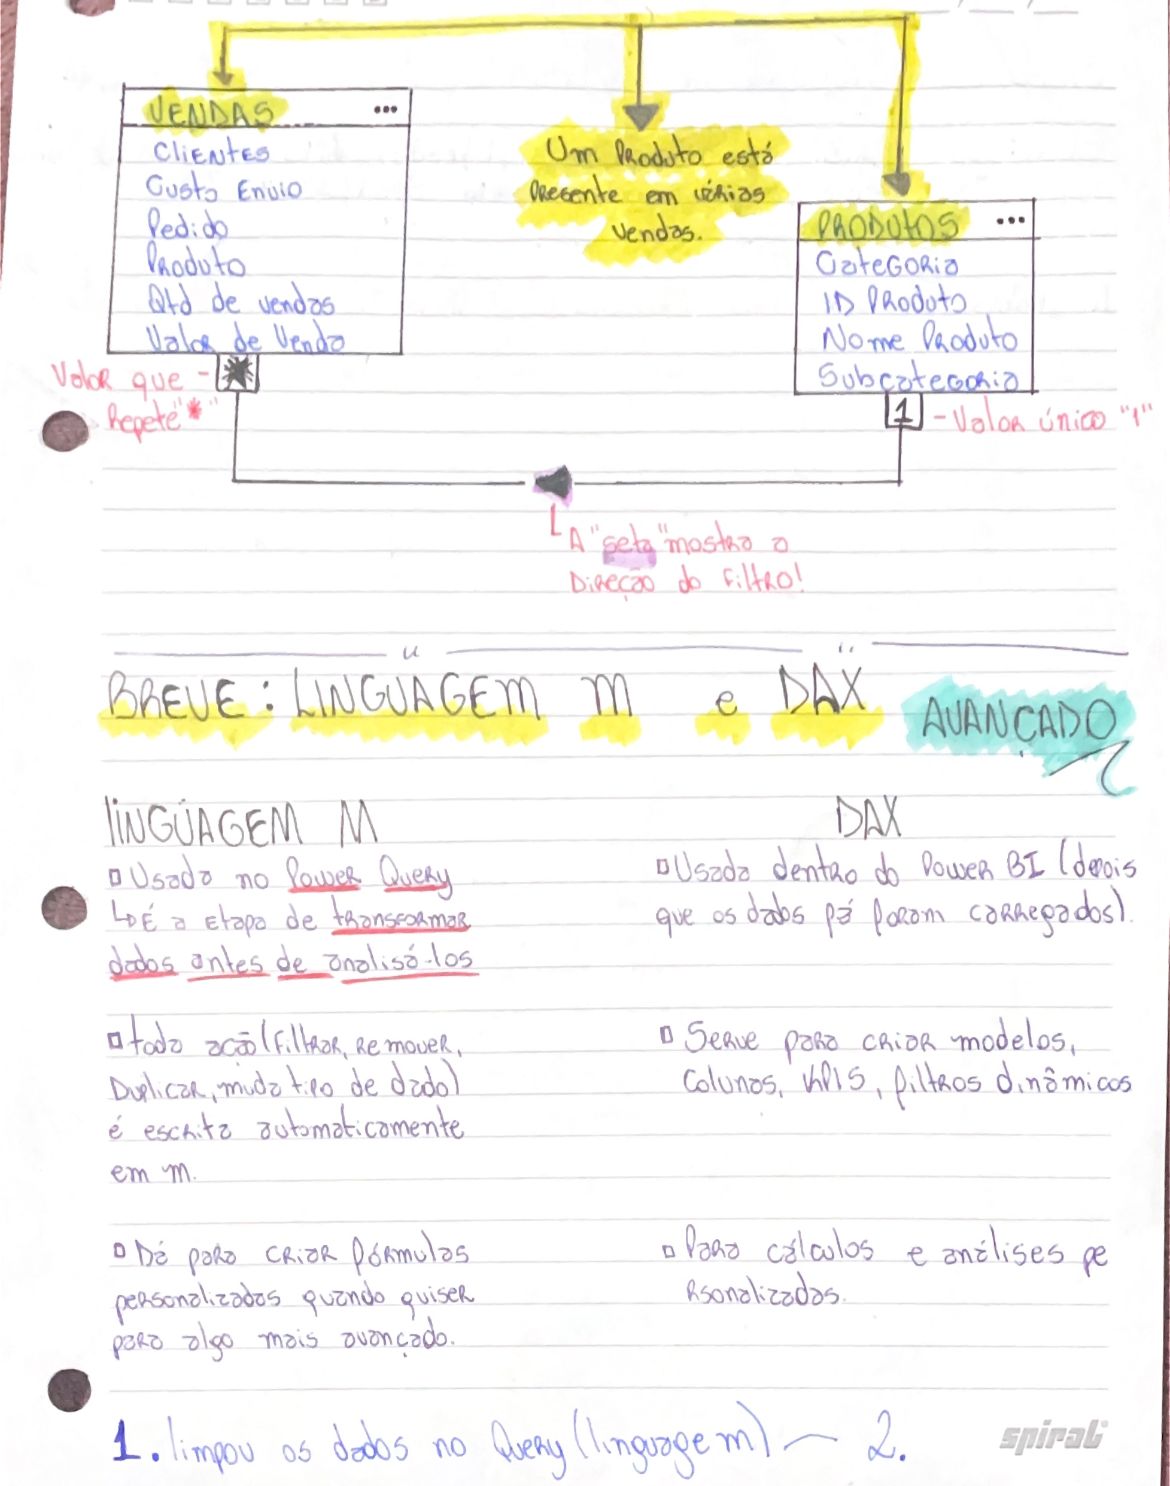 VENDAS ...
Clientes
Custo Envio
Pedido
Produto
Qtd de vendas
Valor de Venda
Um Produto está
Presente em várias
vendas.
PRODUTOS ...
Categoria
ID Produto
Nome Produto
Subcategoria
Valor que -
Repete "*"
*
1
- Valor único "1"
A "seta" mostra a
Direção do Filtro!
BREVE: LINGUAGEM M e DAX AVANÇADO
LINGUAGEM M
▫ Usada no Power Query
↳ É a Etapa de transformar
dados antes de analisá-los
▫ toda ação (Filtrar, Remover,
Duplicar, muda tipo de dado)
é escrita automaticamente
em m.
▫ Dá para criar fórmulas
personalizadas quando quiser
para algo mais avançado.
DAX
▫ Usada dentro do Power BI (depois
que os dados já foram carregados).
▫ Serve para criar modelos,
colunas, KPIS, filtros dinâmicos
▫ Para cálculos e análises pe
rsonalizadas.
1. limpou os dados no Query (linguagem) — 2.
spiral